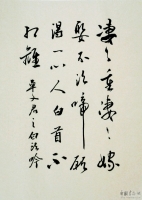 凄々重凄々嫁
娶不须啼愿
得一心人白首不
相离
卓文君之白头吟